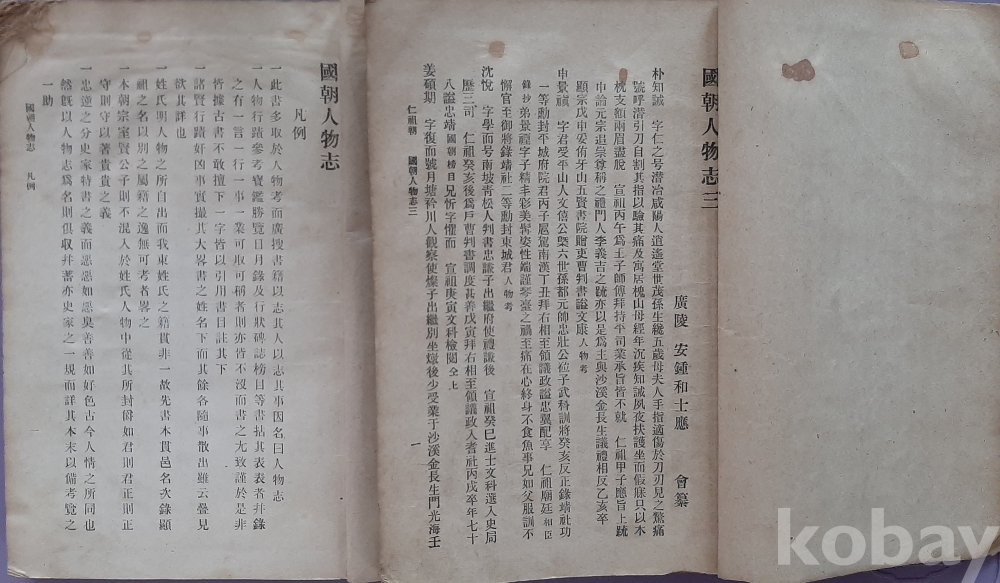 國朝人物志三
廣陵 安鍾和士應 會纂
朴知誠 字仁之号潜冶咸陽人逍遙堂世茂孫生纔五歲母夫人手指適傷於刀刃見之驚痛
號呼潜引刀自割其指以驗其痛及寓居槐山母經年沉疾知誠夙夜扶護坐而假寐只以木
枕支額兩眉盡脫 宣祖丙午爲王子師傅拜持平司業承旨皆不就 仁祖甲子應旨上䟽
申論元宗追崇尊稱之禮門人李義吉之䟽亦以是爲主與沙溪金長生議禮相反乙亥卒
顯宗戊申妥侑牙山五賢書院贈吏曹判書謚文康人物考
申景禛 字君受平山人文僖公槩六世孫都元帥忠壯公砬子武科訓將癸亥反正錄靖社功
一等勳封平城府院君丙子扈駕南漢丁丑拜右相至領議政謚忠翼配享 仁祖廟廷相臣
錄抄弟景禋字子精丰彩美髯姿性端謹琴臺之禍至痛在心終身不食魚事兄如父服訓不
懈官至御將錄靖社二等勳封東城君人物考
沈悅 字學而号南坡靑松人判書忠謙子出繼府使禮謙後 宣祖癸巳進士文科選入史局
歷三司 仁祖癸亥後爲戶曹判書調度甚善戊寅拜右相至領議政入耆社丙戌卒年七十
八謚忠靖國朝榜目兄忻字懼而 宣祖庚寅文科檢閱仝上
姜碩期 字復而號月塘衿川人觀察使燦子出繼別坐燉後少受業于沙溪金長生門光海壬
仁祖朝 國朝人物志三 一
國朝人物志
凡例
一此書多取於人物考而廣搜書籍以志其人以志其事因名曰人物志
一人物行蹟參考寶鑑勝覽日月錄及行狀碑誌榜目等書拈其表表者并錄
之有一言一行一事一業可取可稱者則亦皆不沒而書之尤致謹於是非
皆據古書不敢擅下一字皆以引用書目註其下
一諸賢行蹟奸凶事實撮其大畧書之姓名下而其餘各隨事散出雖云疊見
欲其詳也
一姓氏明人物之所自出而我東姓氏之籍貫非一故先書本貫邑名次錄顯
祖之名以別之屬籍之逸無可考者畧之
一本朝宗室賢公子則不混入於姓氏人物中從其所封爵如君則君正則正
守則守以著貴貴之義
一忠逆之分史家特書之義而惡惡如惡臭善善如好色古今人情之所同也
然旣以人物志爲名則俱收并蓄亦史家之一規而詳其本末以備考覽之
一助
國朝人物志 凡例 一
kobay